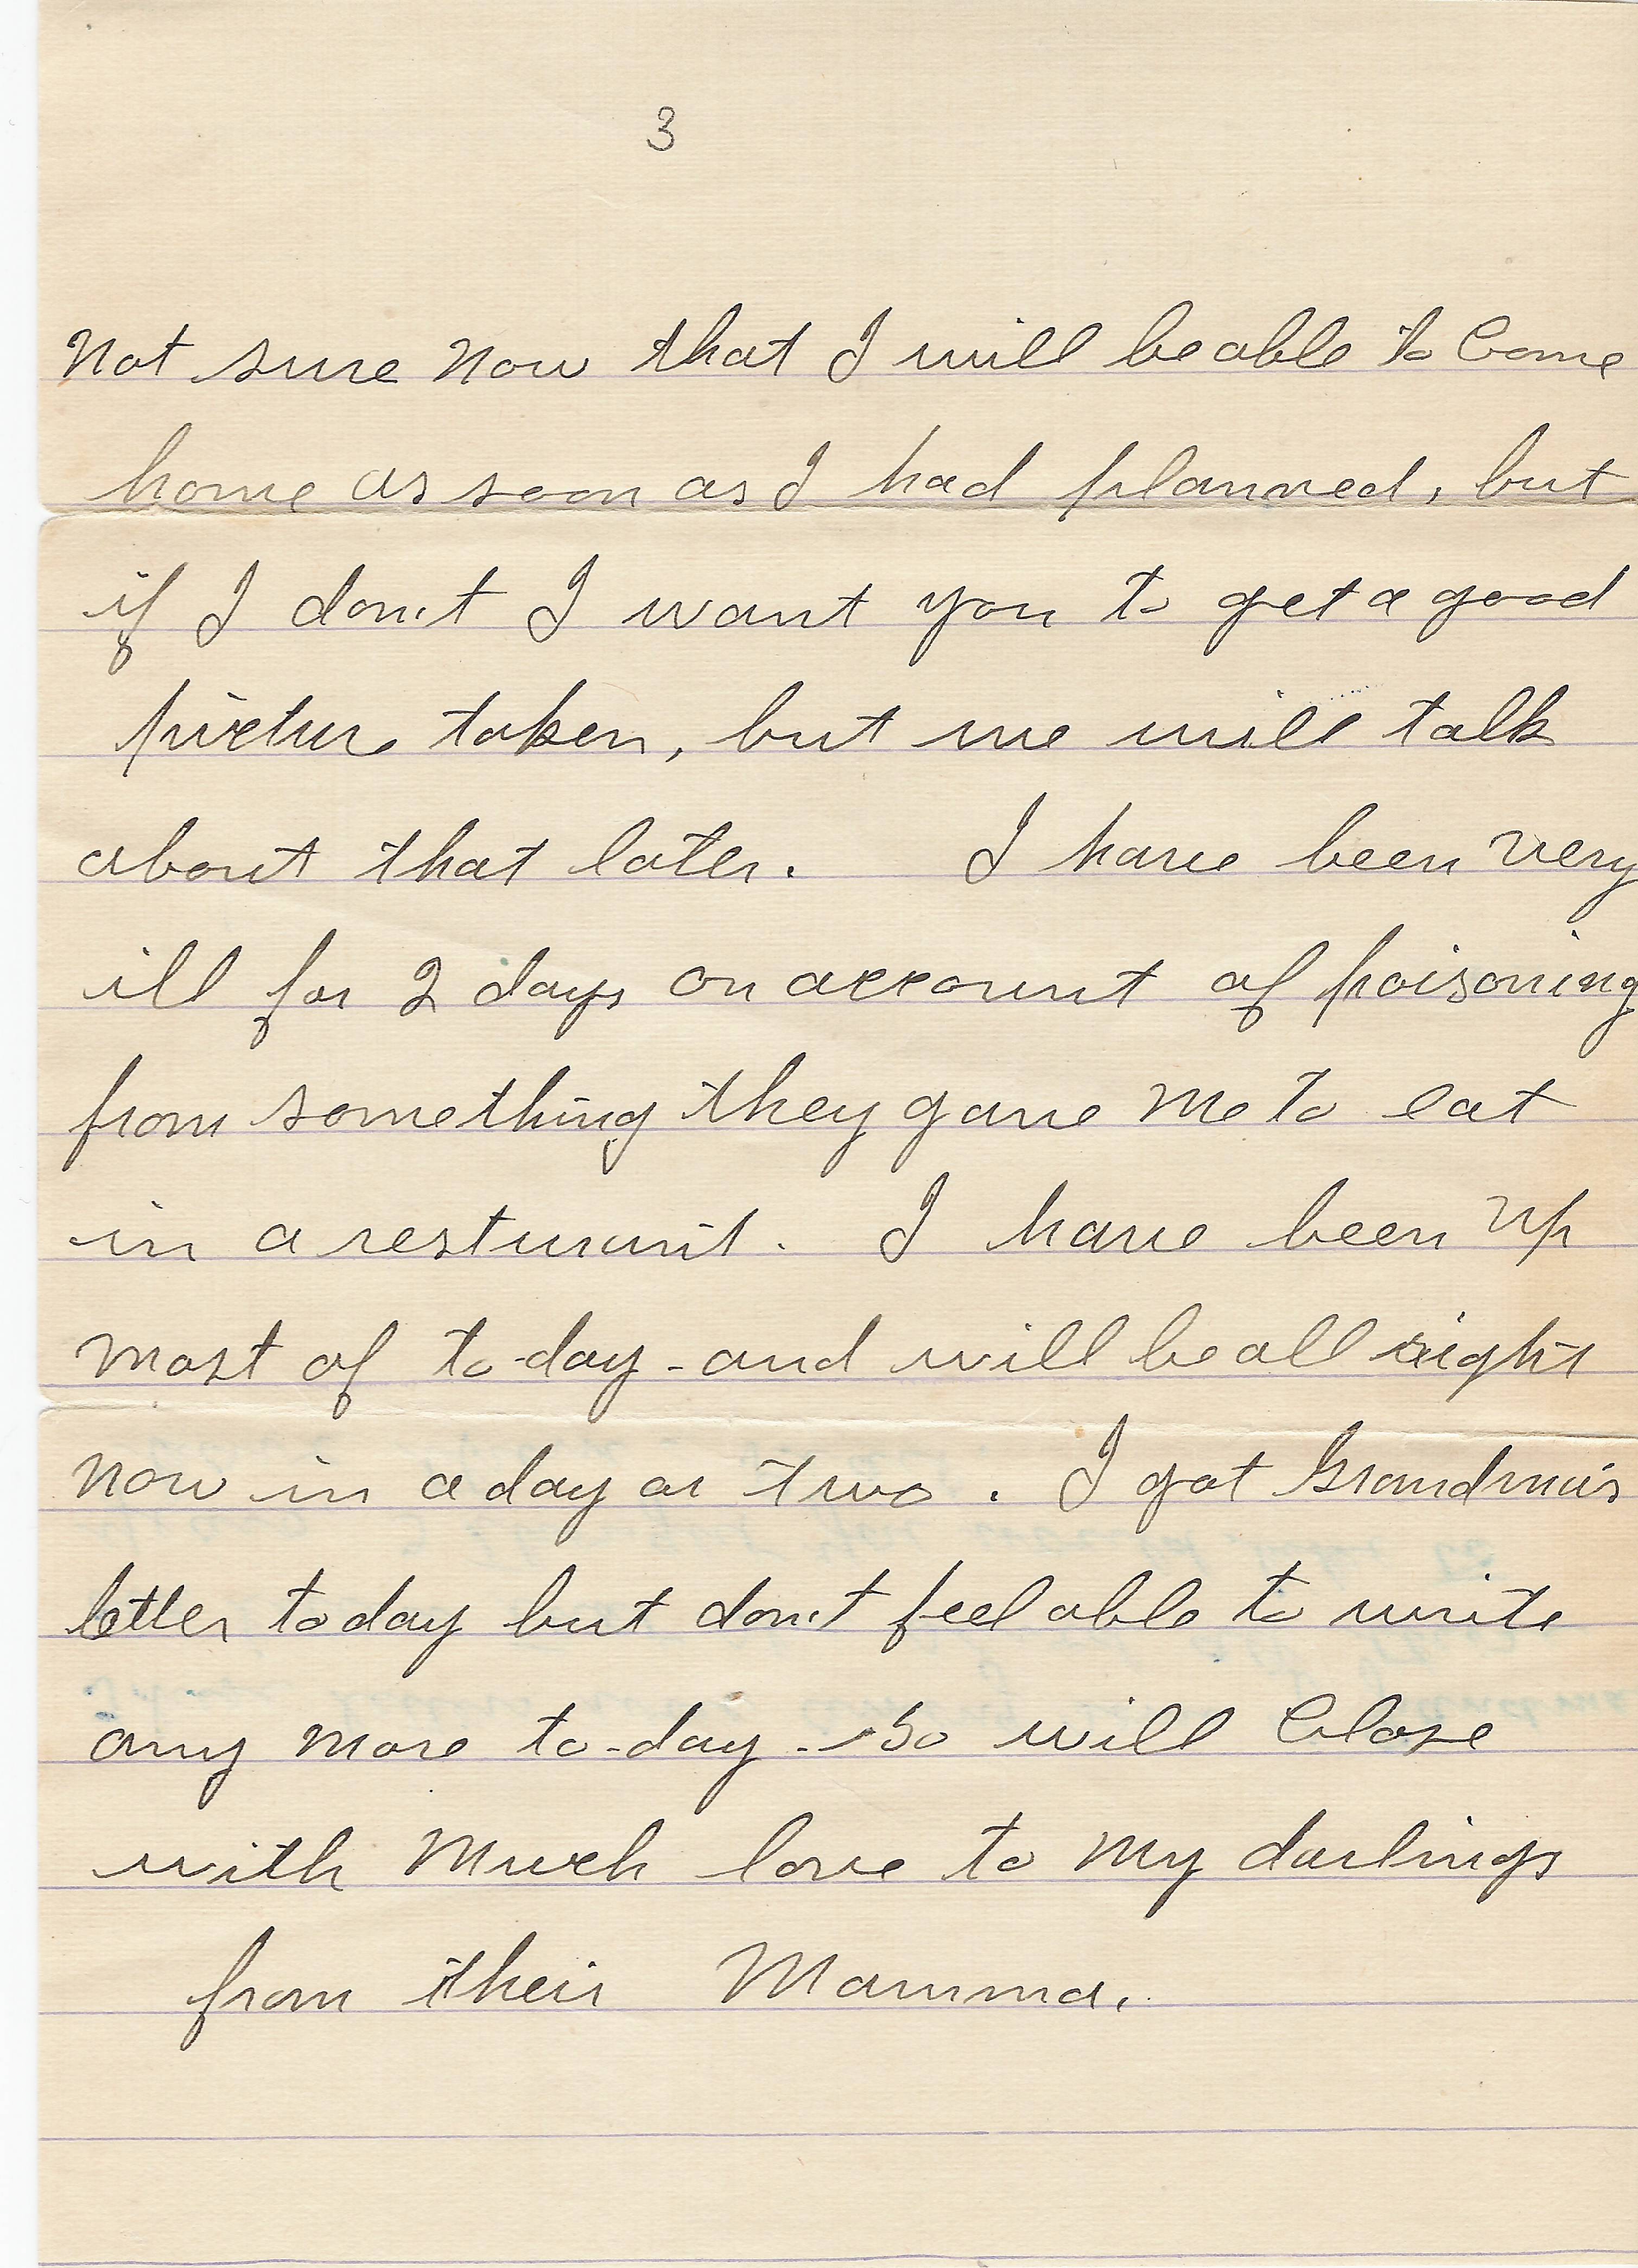 3
Not sure now that I will be able to Come
home as soon as I had planned, but
if I don't I want you to get a good
pictur taken, but we will talk
about that later. I have been very
ill for 2 days on account of poisoning
from something they gave me to eat
in a resturant. I have been up
most of to-day - and will be all right
now in a day or two. I got Grandma's
letter today but don't feel able to write
any more to-day - So will Close
with Much love to my darlings
from their Mamma.